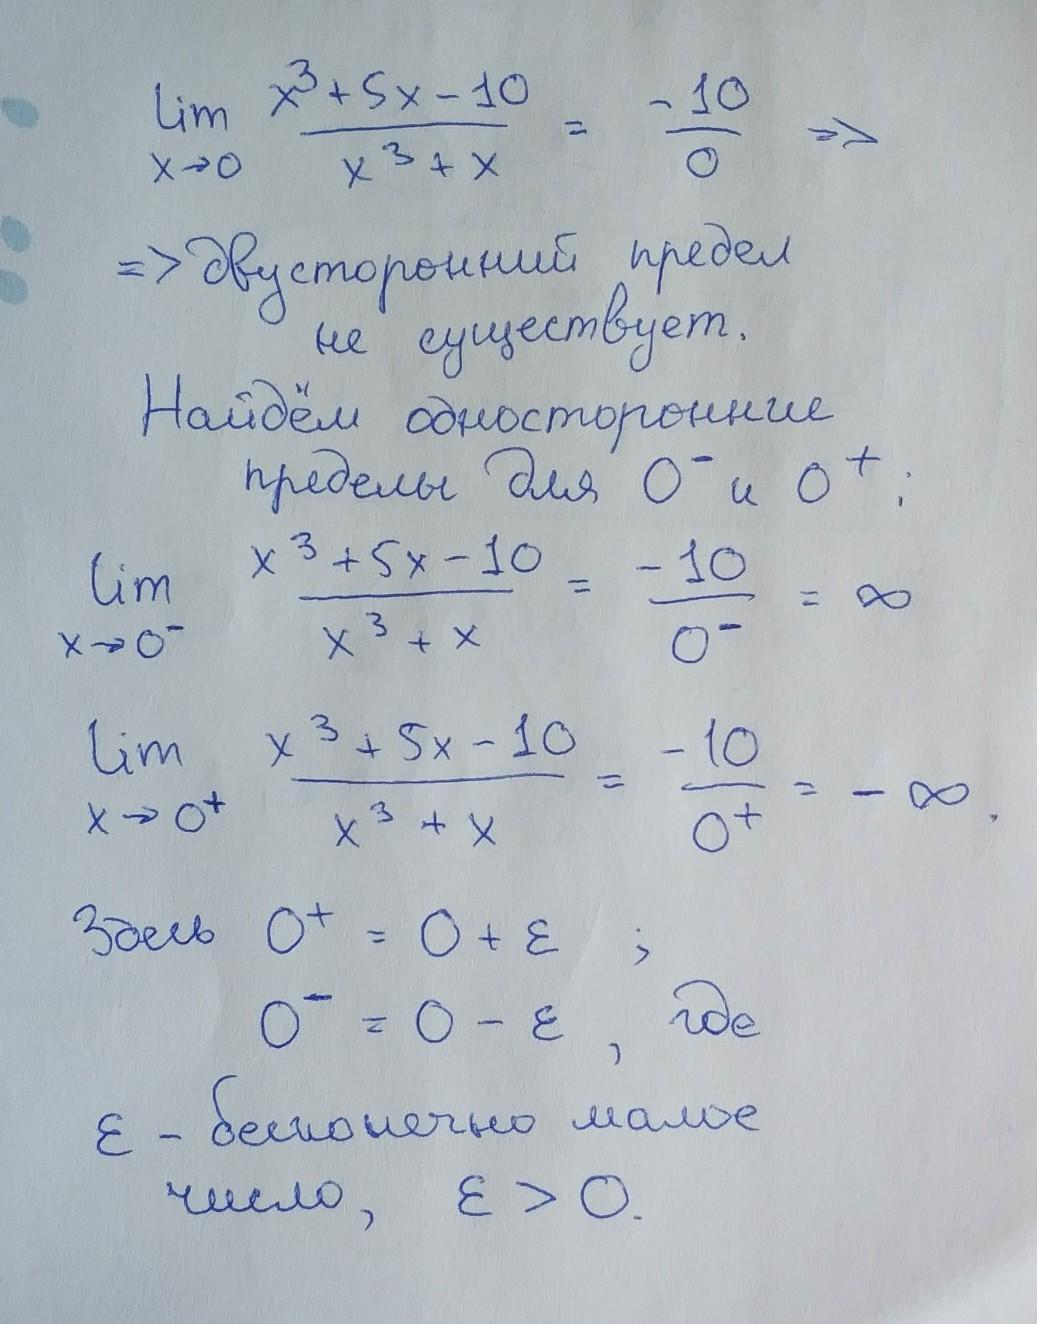 lim x→0 (x³ + 5x - 10)/(x³ + x) = -10/0 =>
=> двусторонний предел
не существует.
Найдём односторонние
пределы для 0⁻ и 0⁺:
lim x→0⁻ (x³ + 5x - 10)/(x³ + x) = -10/0⁻ = ∞
lim x→0⁺ (x³ + 5x - 10)/(x³ + x) = -10/0⁺ = -∞.
Здесь 0⁺ = 0 + ε ;
0⁻ = 0 - ε , где
ε - бесконечно малое
число, ε > 0.